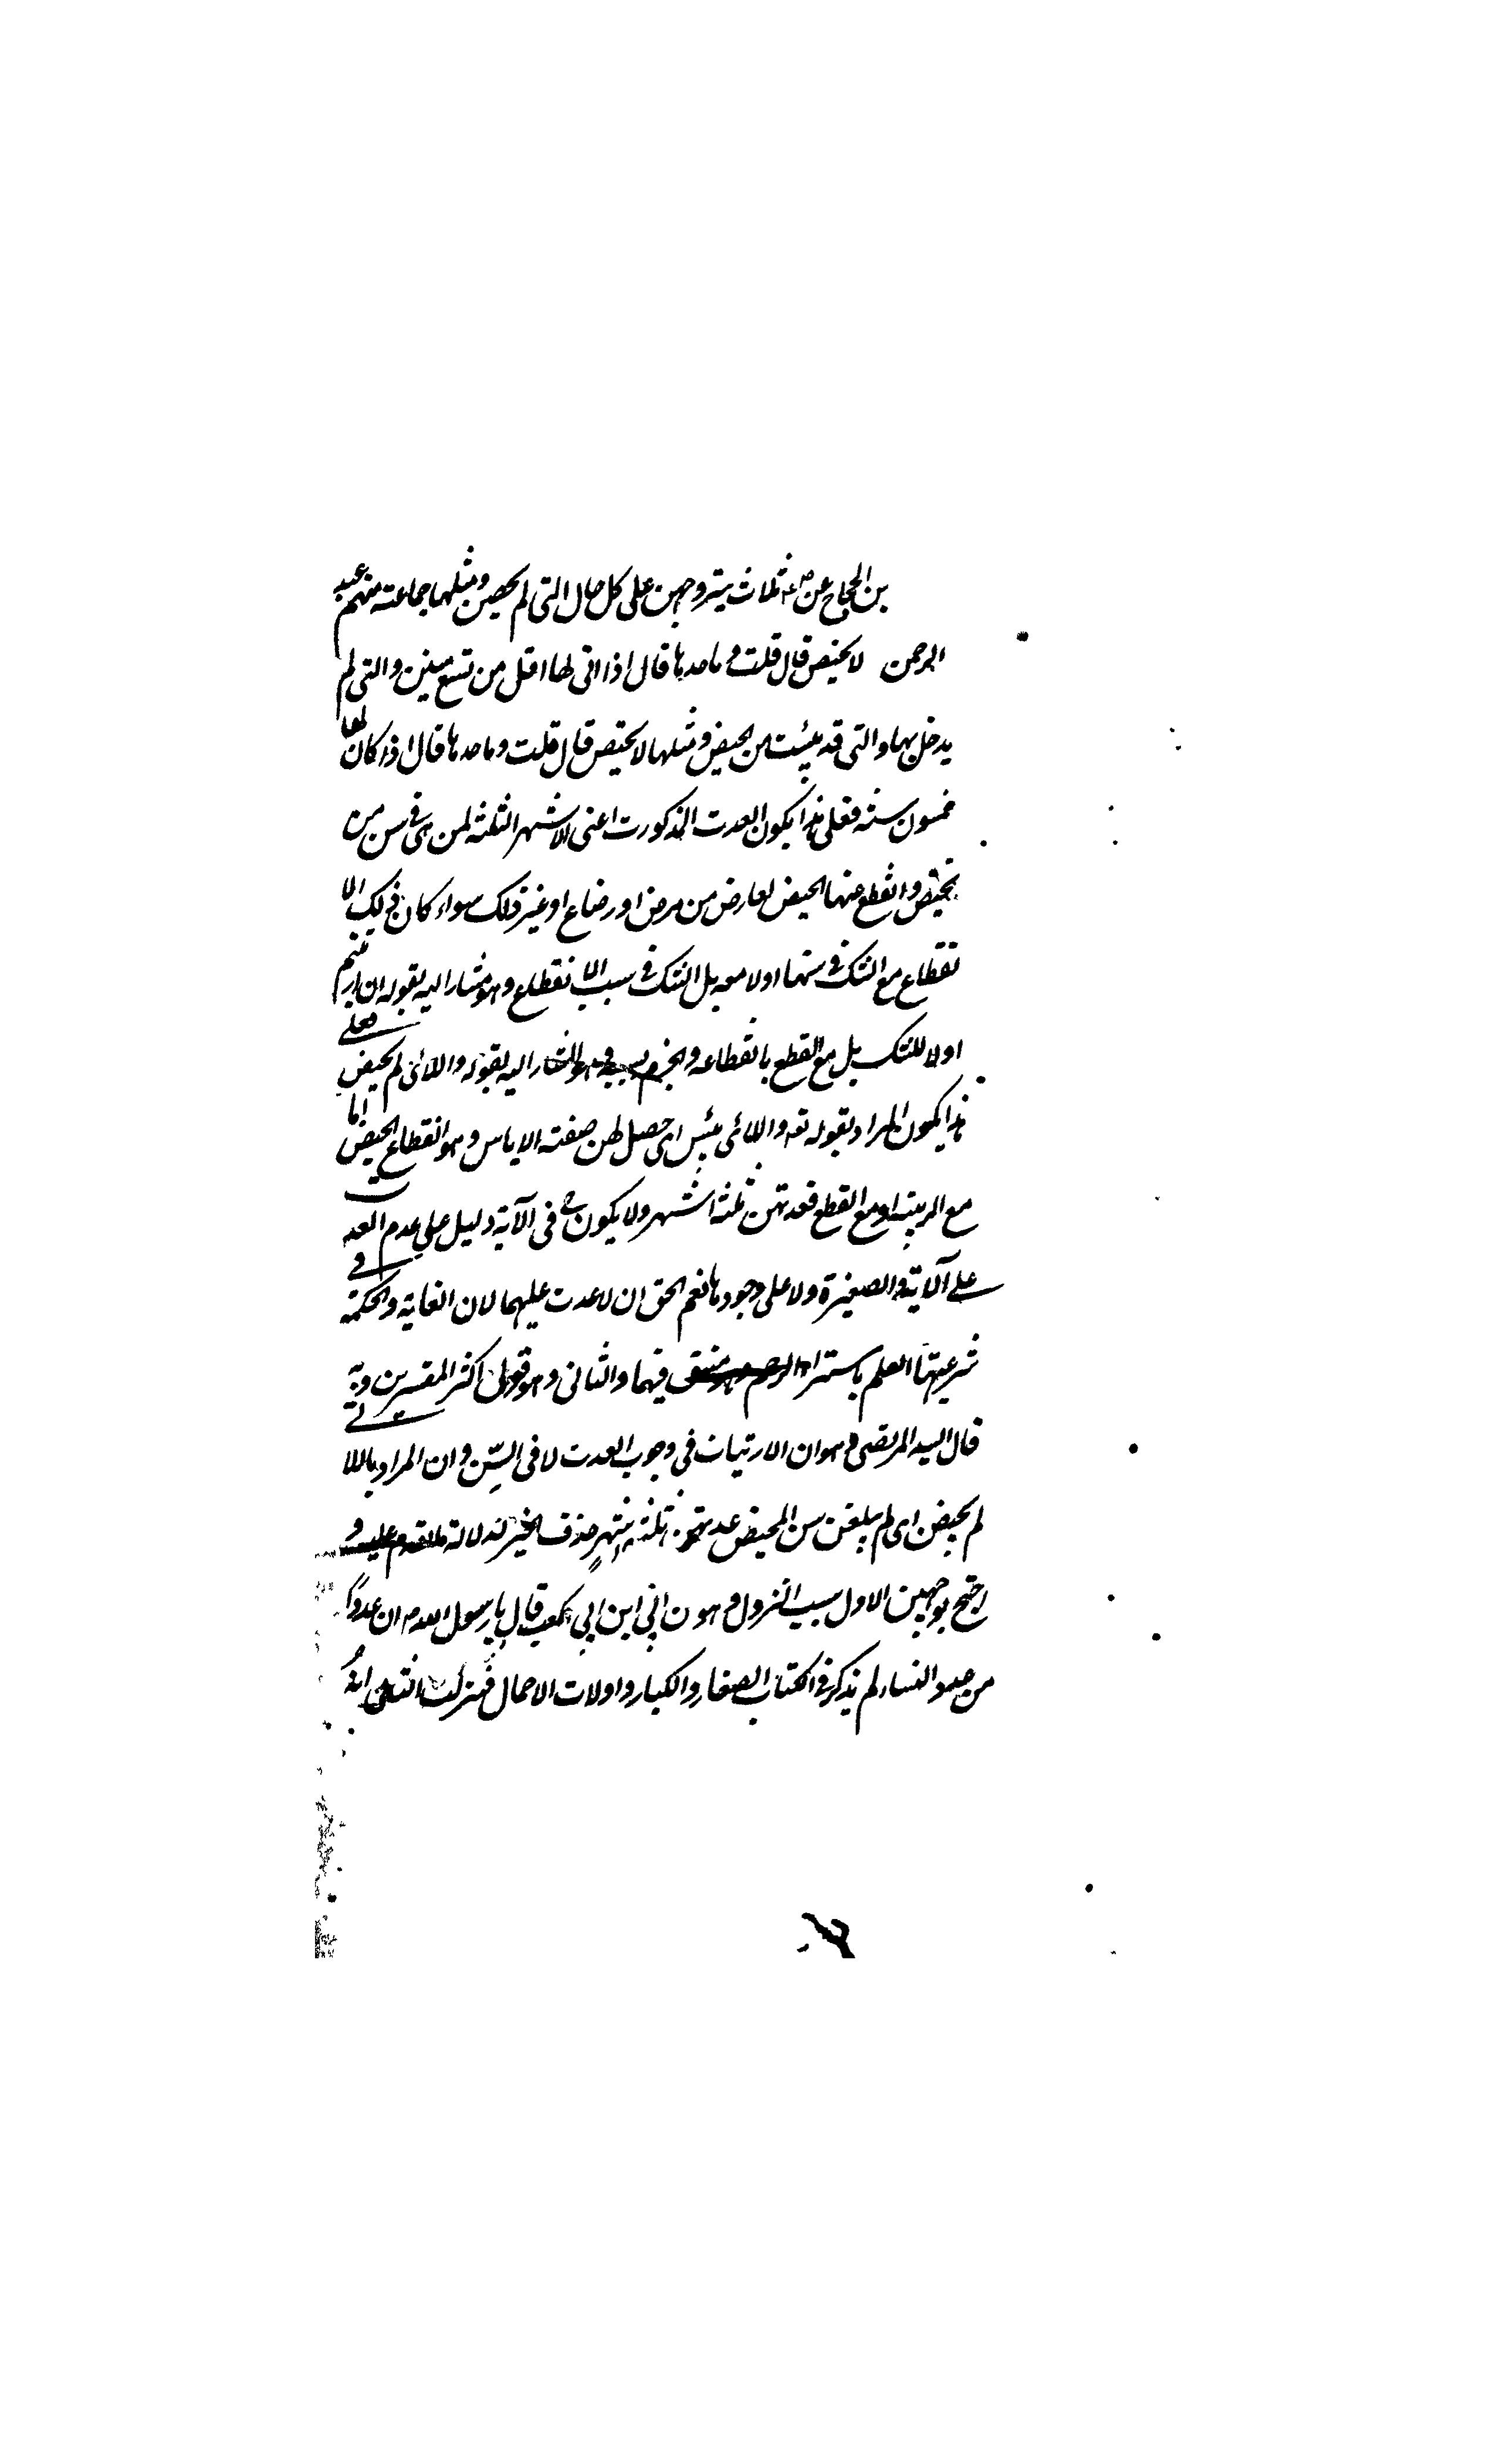 بن الحجاج عن ص ع ثلاث يتزوجهن على كل حال التى لم تحيض ومثلها جماعته منهم عبد
الرحمن لا تحيض قال قلت و ما حدها قال اذا اتى لها اقل من تسع سنين والتى لم
يدخل بها والتى قد يئست من الحيض ومثلها لا تحيض قال قلت وما حدها قال اذا كان لها
خمسون سنة فعلى هذا يكون العدت المذكورت اعنى الاشهر الثلثة لمن هى فى سن من
تحيض وانقطع عنها الحيض لعارض من مرض او رضاع او غير ذلك سواء كان ذلك الا
نقطاع مع الشك فى سنها اولا معه بل الشك فى سبب الانقطاع وهو مشار اليه بقوله ان ارتبتم
اولا للشك بل مع القطع بانقطاعه والجزم بسببه وهو المشار اليه بقوله واللائى لم يحيض فعلى
هذا يكون المراد بقوله تعه واللائى يئس اى حصل لهن صفته الاياس وهو انقطاع الحيض اما
مع الريبة او مع القطع فعدتهن ثلثة اشهر ولا يكون ح فى الآية دليل على عدم العدت
على الآية والصغيرة ولا على وجودها نعم الحق ان لا عدت عليهما لان الغاية والحكمة فى
شرعيتها العلم باستبراء الرحم وهو منتفى فيهما والثانى وهو قول اكثر المفسرين وبه
قال السيد المرتضى وهو ان الارتياب فى وجوب العدت لا فى السن وان المراد باللائى
لم يحيض اى لم يبلغن سن المحيض عدتهن ثلثة اشهر حذف الخبر لدلالة ما تقدم عليه و
احتج بوجهين الاول سبب النزول وهو ن ابى ابن ابى كعب قال يا رسول الله ص ان عددًا
من عدد النساء لم يذكر فى الكتاب الصغار والكبار واولات الاحمال فنزلت الثانى انه